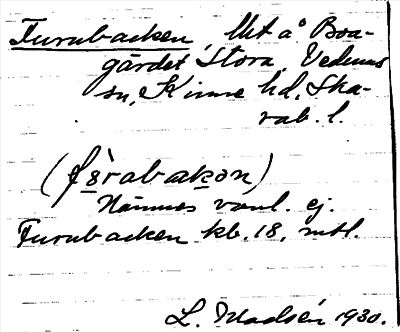 Furubacken, Mt å Boa-
gärdet Stora, Vedums
sn, Kinne hd, Ska-
rab. l.
(fs̀rabakən)
Nämnes vanl. ej.
Furubacken kb. 18, mtl.
L. Madsén 1930.